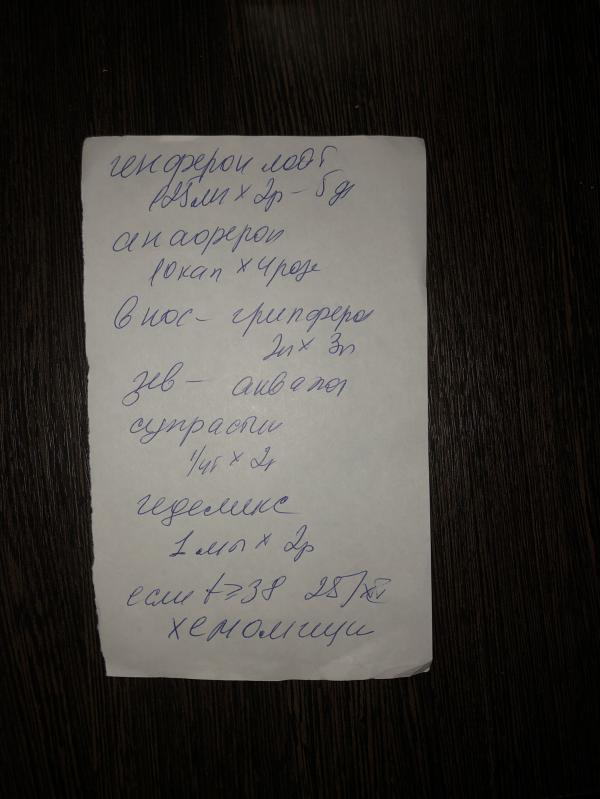 генферон лайт
125 мг х 2р – 5д
анаферон
10 кап х 4 раза
в нос – гриппферон
2к х 3р
зев – аквалор
супрастин
1/4т х 2р
геделикс
1 мл х 2р
если t ≥ 38 25/XII
хемомицин